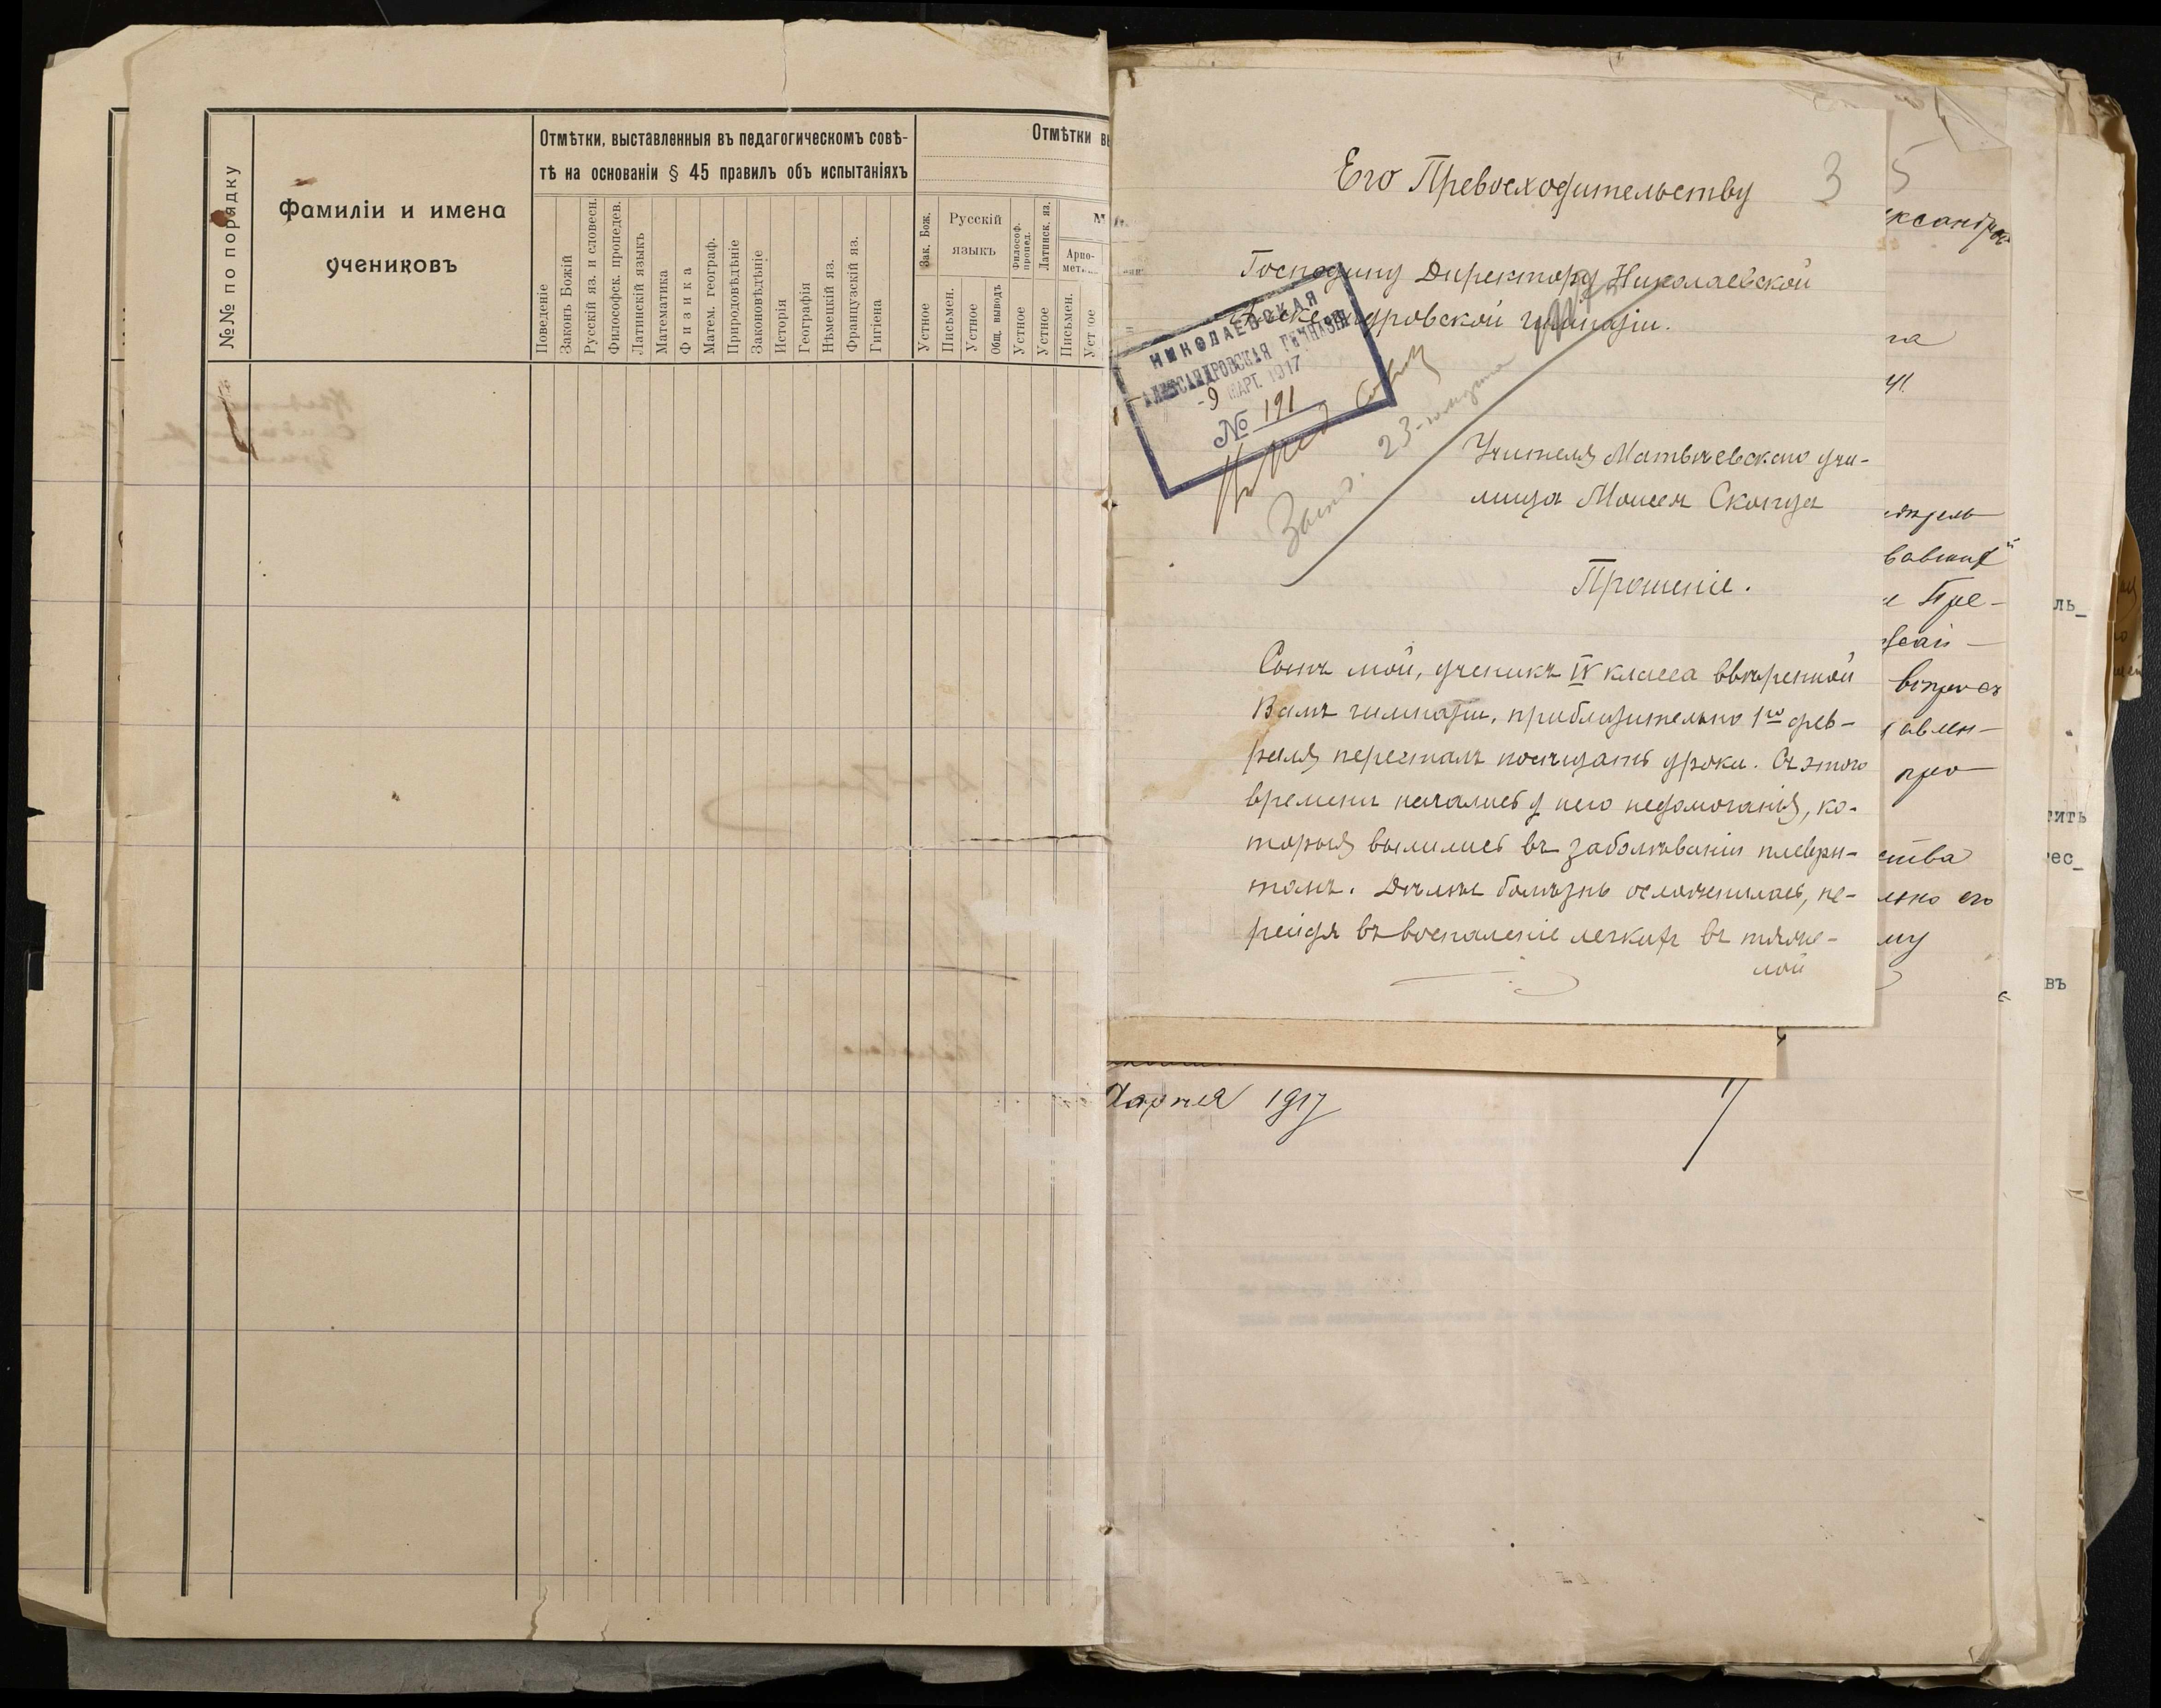 №№ по порядку
Фамиліи и имена
учениковъ
Отмѣтки, выставленныя въ педагогическомъ совѣ-
тѣ на основаніи § 45 правилъ объ испытаніяхъ
Поведеніе
Законъ Божій
Русскій яз. и словесн.
Философск. пропедев.
Латинскій языкъ
Математика
Физика
Матем. географ.
Природовѣдѣніе
Законовѣдѣніе
Исторія
Географія
Нѣмецкій яз.
Французскій яз.
Гигіена
Отмѣтки
Зак. Бож.
Устное
Русскій
языкъ
Письмен.
Устное
Общ. выводъ
Философ.
пропед.
Устное
Латинск. яз.
Устное
Ариѳ-
Письмен.
Его Превосходительству
3
Господину Директору Николаевской
Александровской гимназіи.
НИКОЛАЕВСКАЯ
АЛЕКСАНДРОВСКАЯ ГИМНАЗІЯ
-9 МАРТ. 1917
№ 191
Учителя Матвѣевскаго учи-
лища Моисея
Прошеніе.
Сынъ мой, ученикъ IV класса ввѣренной
Вамъ гимназіи, приблизительно 1го фев-
раля пересталъ посѣщать уроки. Съ этого
времени начались у него недомоганія, ко-
торыя вылились въ заболѣваніи плеври-
томъ. Далѣе болѣзнь осложнилась, пе-
рейдя въ воспаленіе легкихъ въ тяже-
лой
5
Пре-
про
ства
его
му
ль_
тить
ес_
въ
Марта 1917